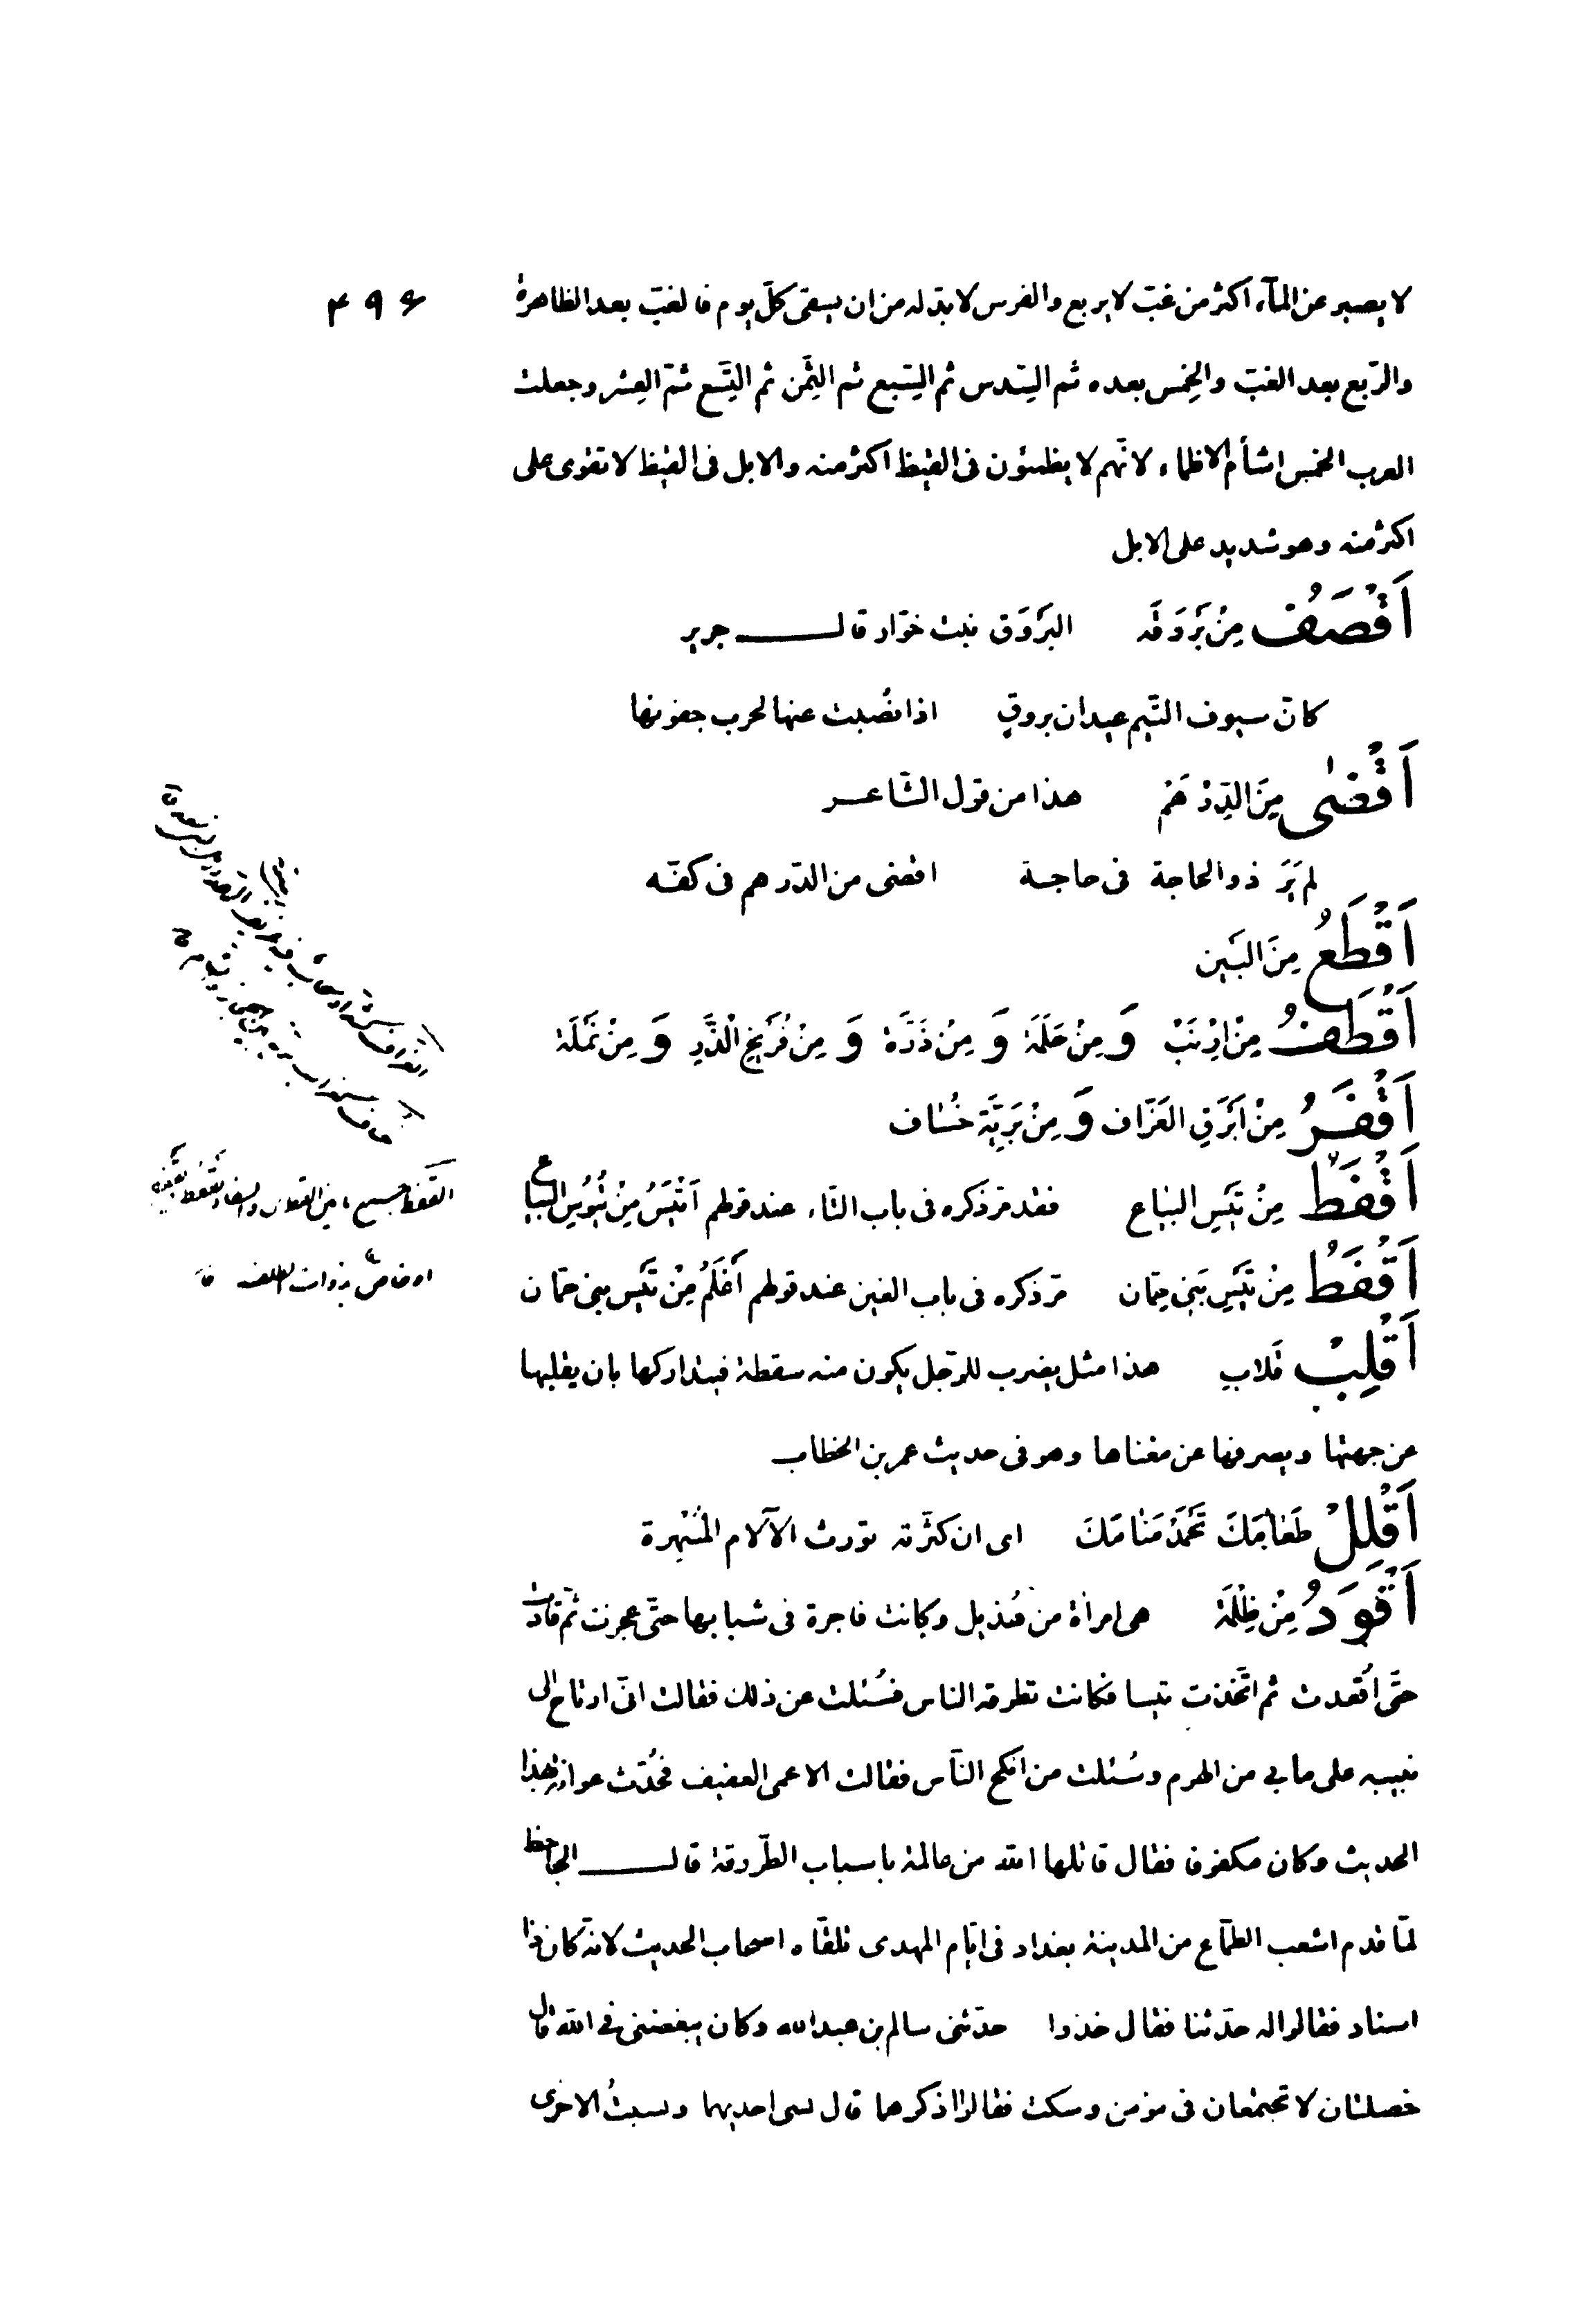 ۴۹۶
لا يصبر عن المآء اكثر من غبّ لا يربع والفرس لا بدّ له من ان يسقى كلّ يوم فالغبّ بعد الظاهرة
والرّبع بعد الغبّ والخِمس بعده ثم السِّدس ثم السِّبع ثم الثِّمن ثم التِّسع ثمّ العِشر وجعلت
العرب الخمس اشأم الاظماء لانّهم لا يظمئون فى القيظ اكثر منه والابل فى القيظ لا تقوى على
اكثر منه وهو شديد على الابل
اَقْصَفُ مِنْ بَرْوَقَه البَرْوَق نبت خوّار قال جرير
كانّ سيوف التّيم عيدان بروقٍ اذا نُضيت عنها لحرب جفونها
اَقْضٰى مِنَ الدِّرْهَمْ هذا من قول الشّاعر
لم يَرَ ذو الحاجة فى حاجة اقضى من الدّرهم فى كفّه
اَقْطَعُ مِنَ البَين
اَقْطَفُ مِنْ اِرْنَبْ وَ مِنْ حَلَمَة وَ مِنْ ذَرَّة وَ مِنْ فُرَيْخِ الذَّرِ وَ مِنْ نَمْلَة
اَقْفَرُ مِنْ اَبْرَقِ العَزّاف وَ مِنْ بَرِيَّة خُساف
اَقْفَطُ مِنْ تَيْسِ البَيّاع فقد مرّ ذكره فى باب التّاء عند قولهم اَتْيَسُ مِنْ تُيُوسِ البَيّاع
اَقْفَطُ مِنْ تَيْسِ بَنى حِمّان مرّ ذكره فى باب الغين عند قولهم اَغْلَمُ مِنْ تَيْس بنى حمّان
اَقْلِبْ قَلابِ هذا مثل يضرب للرّجل يكون منه سقطة فيتداركها بان يقلبها
عن جهتها ويصرفها عن معناها وهو فى حديث عمر بن الخطاب
اَقْلِلْ طَعامَكَ تَحْمَدْ مَنامَكَ اى ان كثرته تورث الآلام المُسْهِرة
اَقْوَدُ مِنْ ظِلْمَة هى امرأة من هُذيل وكانت فاجرة فى شبابها حتّى عجزت ثمّ قادت
حتّى اُقعدت ثم اتّخذت تيسا فكانت تطرقه الناس فسُئلت عن ذلك فقالت انّى ارتاح الى
نبيبه على ما بى من الهرم وسُئلت من انكح النّاس فقالت الاعمى العفيف فحُدّث عوانة بهذا
الحديث وكان مكفوفا فقال قاتلها الله من عالمة باسباب الطّروقة قال الجاحظ
لمّا قدم اشعب الطمّاع من المدينة بغداد فى ايّام المهدى تلقّاه اصحاب الحديث لانّه كان ذا
اسناد فقالوا له حدّثنا فقال خذوا حدّثنى سالم بن عبد الله وكان يبغضنى فى الله قال
خصلتان لا تجتمعان فى مؤمن وسكت فقالوا اذكرهما قال نسى احديهما ونسيتُ الاخرى